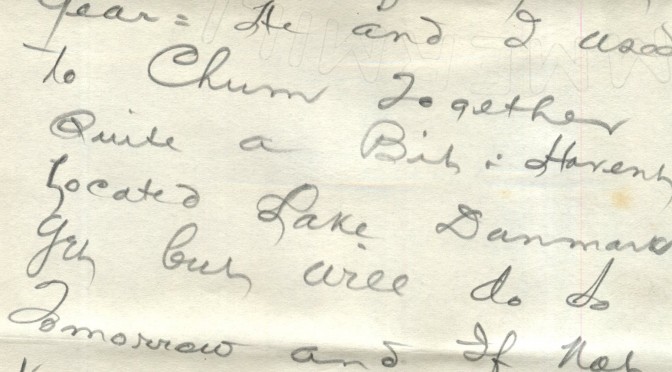 Year = He and I used
to Chum Together
Quite a Bit : Havent
Located Lake Danmark
Yet but will do so
Tomorrow and If Not